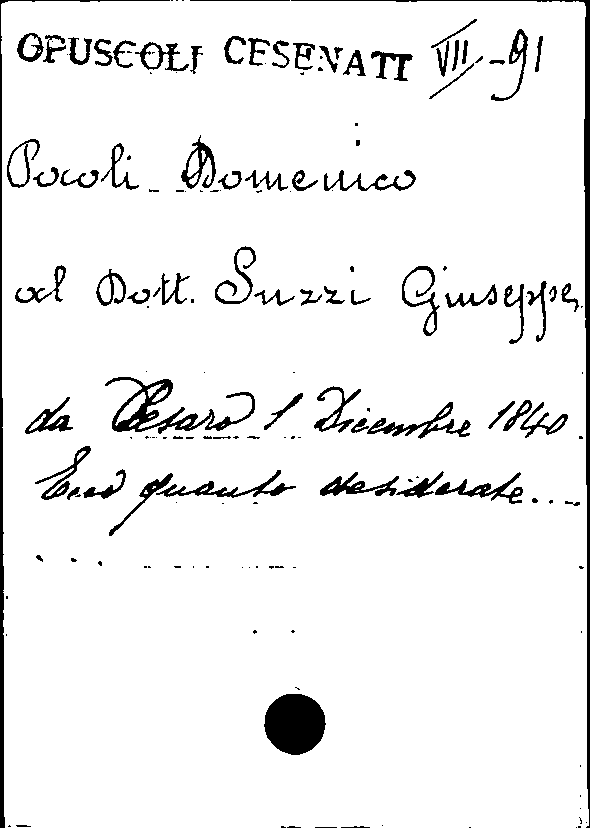 OPUSCOLI CESENATI VII-91
Pocoli Domenico
al Dott. Suzzi Giuseppe,
da Pesaro 1 Dicembre 1840.
Ecco quanto desiderate....